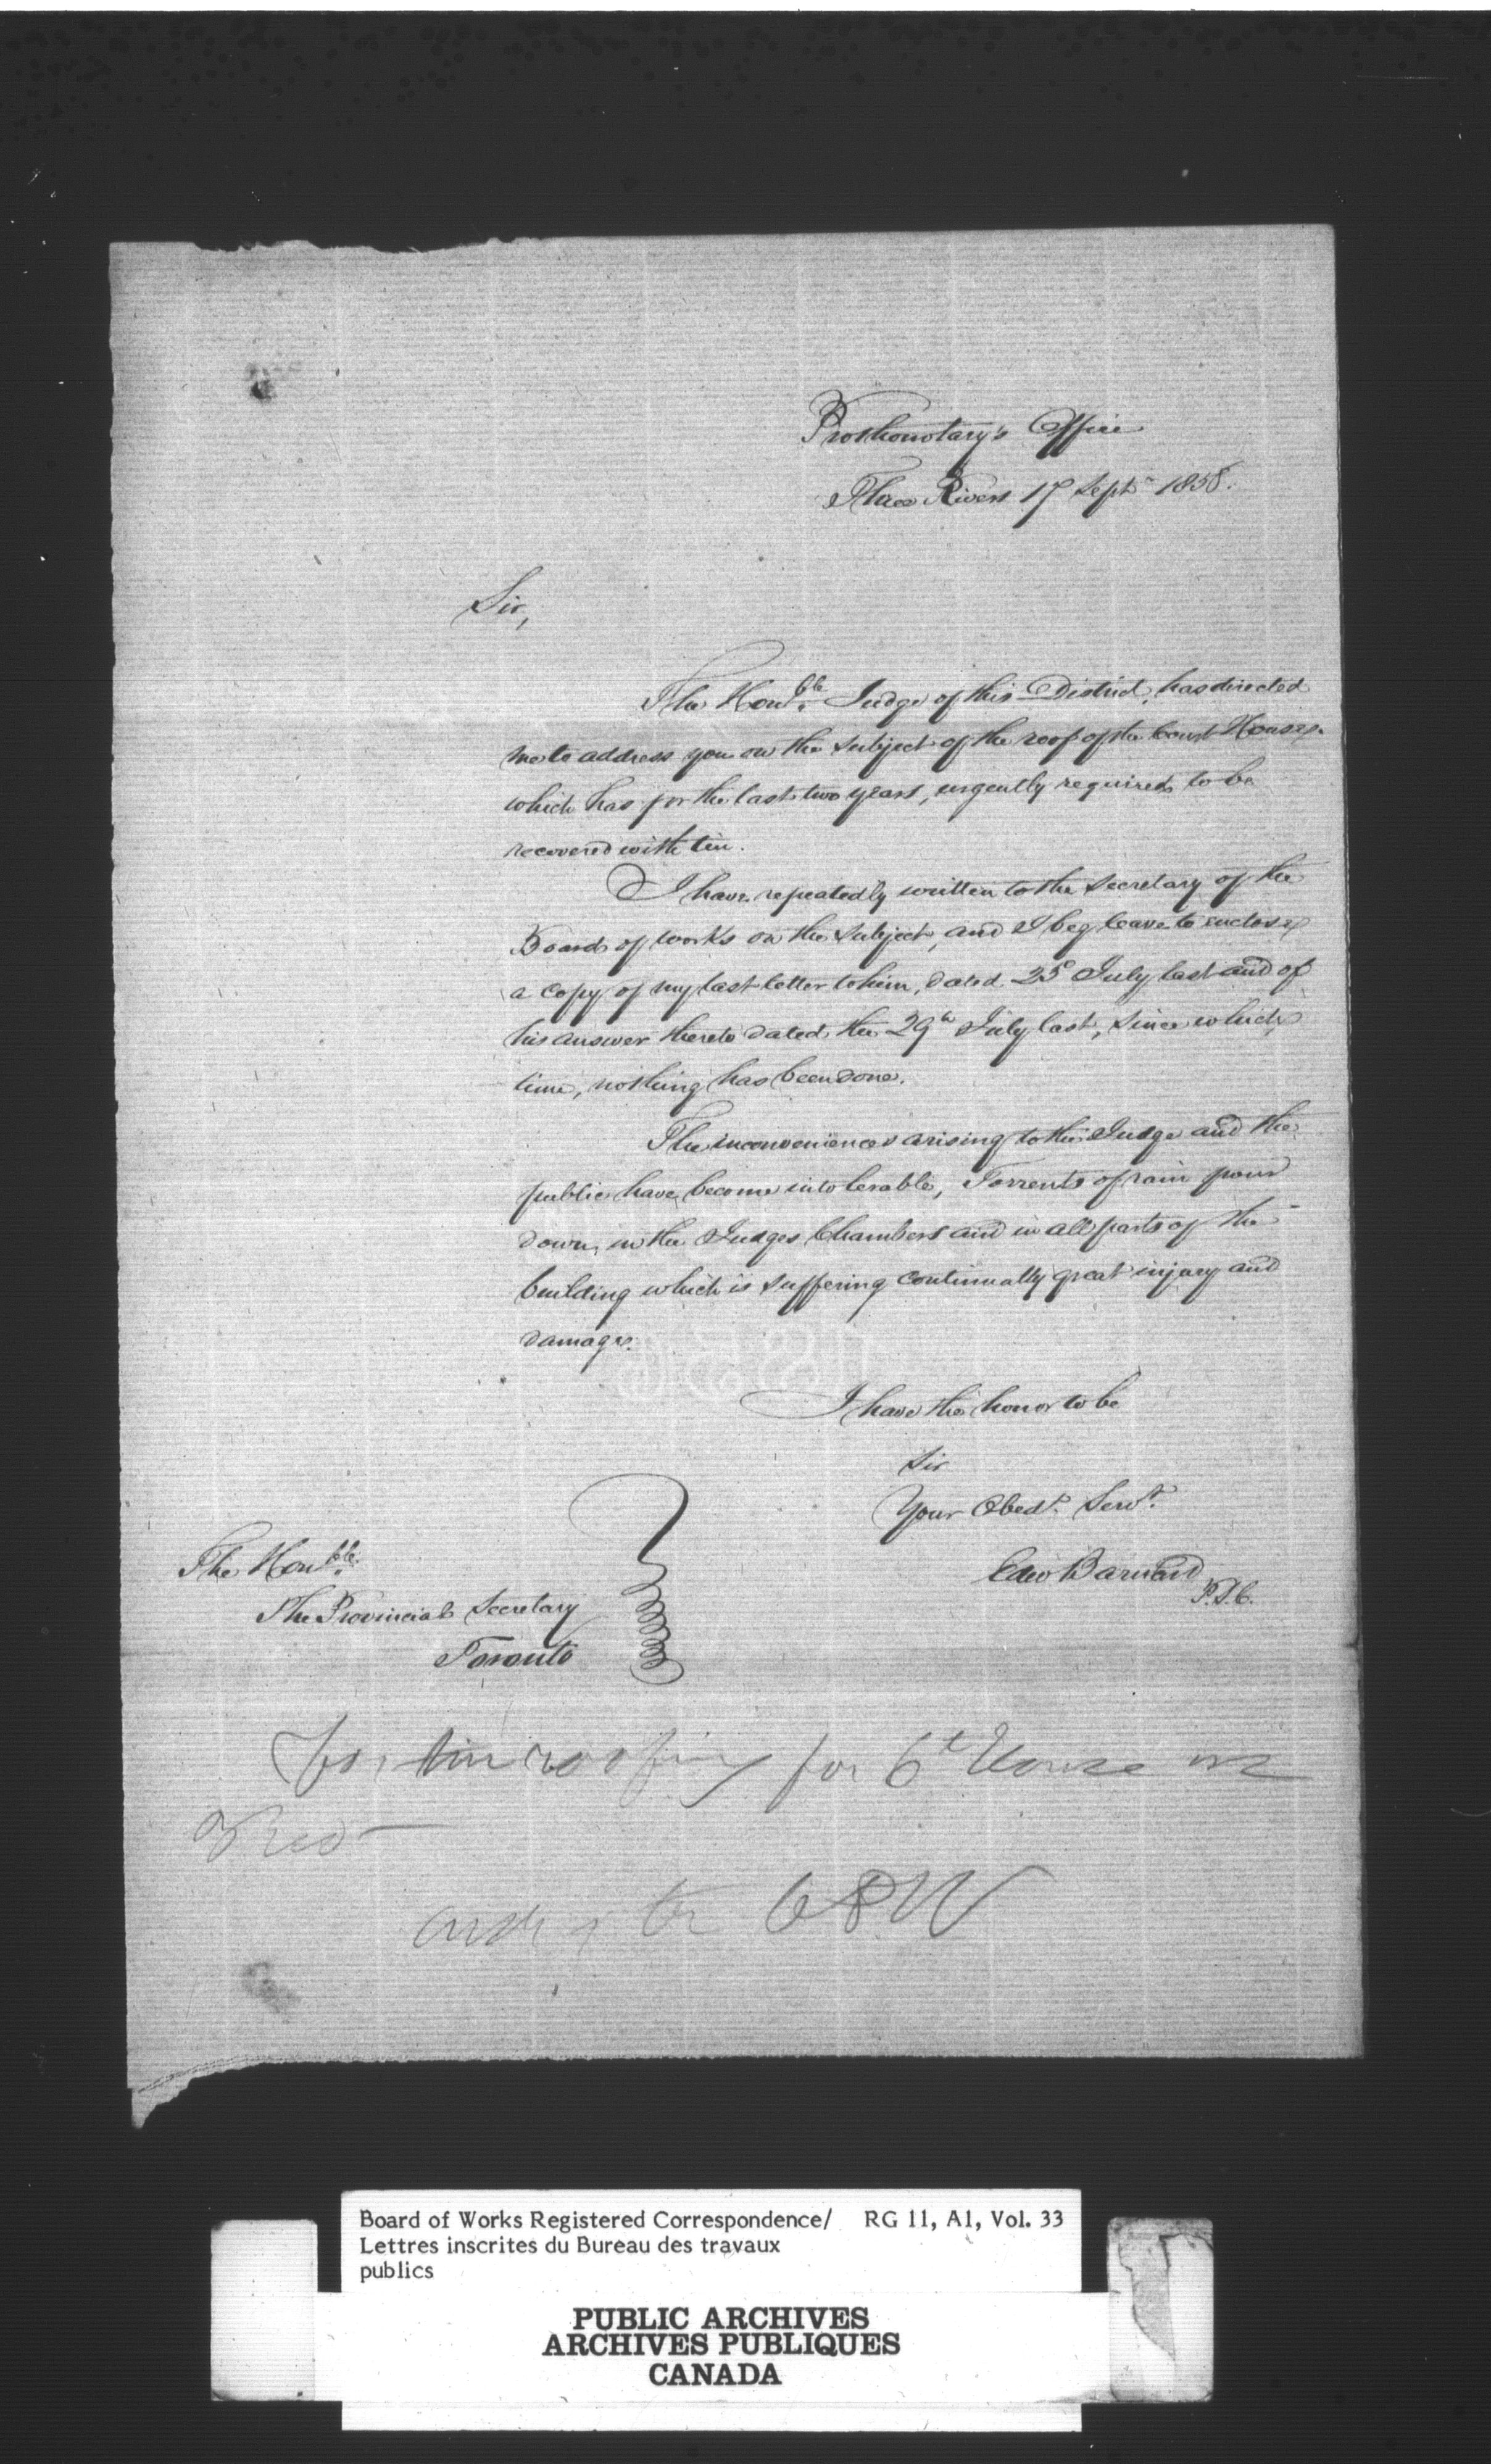 Prothonotary's Office
Three Rivers 17 Septr 1858.
Sir,
The Honble. Judge of this District, has directed
me to address you on the subject of the roof of the Court House,
which has for the last two years, urgently required to be
recovered with tin.
I have repeatedly written to the Secretary of the
Board of works on the subject, and I beg leave to enclose
a copy of my last letter to him, dated 25th July last and of
his answer thereto dated the 29th July last, since which
time, nothing has been done.
The inconveniences arising to the Judge and the
public have become intolerable, Torrents of rain pour
down, in the Judges Chambers and in all parts of the
building which is suffering continually great injury and
damage.
I have the honor to be
Sir
Your Obedt. Servt.
Edw Barnard
P.S.C.
The Honble.
The Provincial Secretary
Toronto
for tin roofing for Ct House
3 Riv
to C P W
Board of Works Registered Correspondence/ RG 11, A1, Vol. 33
Lettres inscrites du Bureau des travaux
publics
PUBLIC ARCHIVES
ARCHIVES PUBLIQUES
CANADA